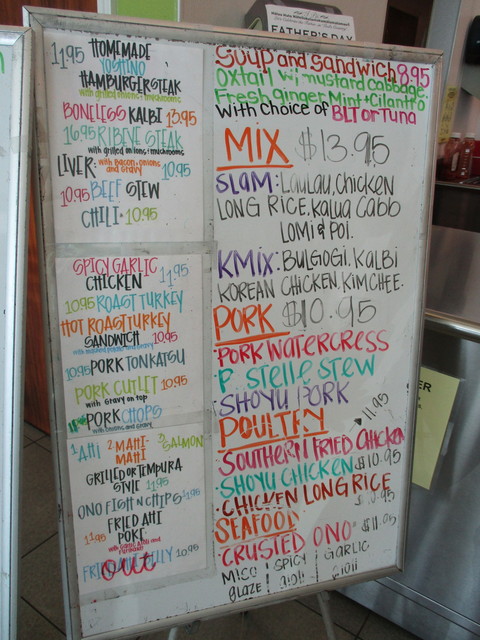 FATHER'S DAY
11.95 HOMEMADE
YOSHINO
HAMBURGER STEAK
with grilled onions & mushrooms
BONELESS KALBI 13.95
16.95 RIBEYE STEAK
with grilled onions & mushrooms
LIVER: with Bacon & onions and Gravy 10.95
10.95 BEEF STEW
CHILI 10.95
SPICY GARLIC
CHICKEN 11.95
10.95 ROAST TURKEY
HOT ROAST TURKEY
SANDWICH 10.95
10.95 PORK TONKATSU
PORK CUTLET 10.95
with Gravy on top
PORK CHOPS
with Onions and Gravy
1 AHI 2 MAHI-MAHI 3 SALMON
GRILLED OR TEMPURA
STYLE 11.95
ONO FISH N CHIPS 11.95
FRIED AHI
POKE
11.95
FRIED AHI BELLY 10.95
out
Soup and sandwich 8.95
Oxtail w/ mustard cabbage
Fresh ginger Mint & Cilantro
with choice of BLT or Tuna
MIX $13.95
SLAM: LauLau, Chicken
LONG RICE, Kalua Cabb
LOMI & POI.
KMIX: BULGOGI, KALBI
KOREAN CHICKEN, KIMCHEE.
PORK $10.95
PORK WATERCRESS
P. Stelle Stew
SHOYU PORK
POULTRY
11.95
SOUTHERN FRIED CHICKEN
SHOYU CHICKEN $10.95
CHICKEN LONG RICE
SEAFOOD
CRUSTED ONO $11.95
MISO | SPICY | GARLIC
glaze | aioli | aioli